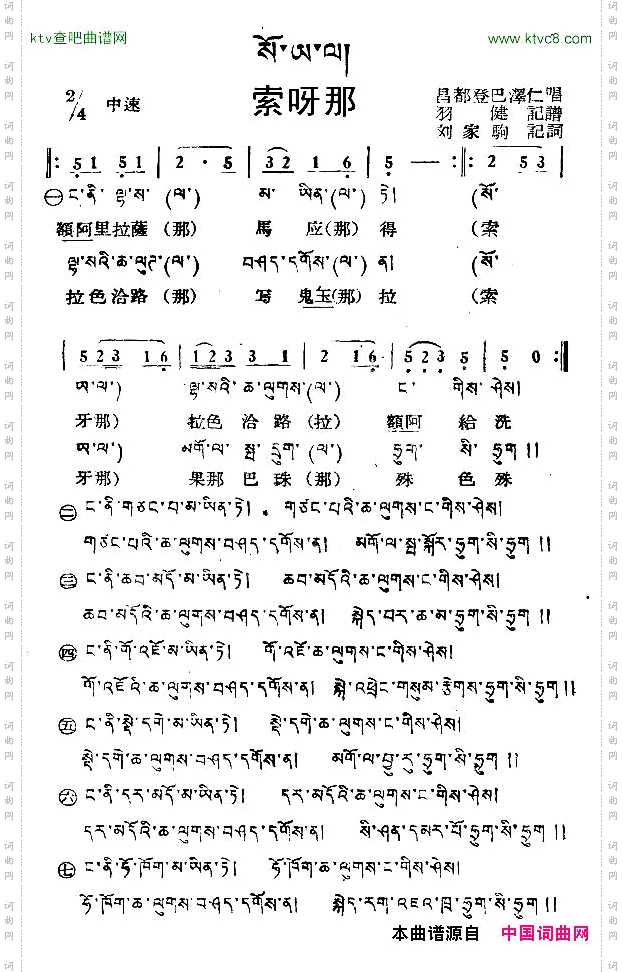 ktv查吧曲谱网 www.ktvc8.com
སོ་ཨ་ལ།
索呀那
2/4 中速
昌都登巴澤仁唱
羽健記譜
刘家駒記詞
‖: 5 1 5 1 | 2 · 5 | 3 2 1 6 | 5 — :‖: 2 5 3 |
㊀ ང་ནི་ ལྷ་ས་ (ལ་) མ་ ཡིན་(ལ་) ཏེ། (སོ་
額阿里拉薩 (那) 馬 应(那) 得 (索
ལྷ་སའི་ཆ་ལུང་(ལ་) བཤད་དགོས་(ལ་) ན། (སོ་
拉色洽路(那) 写 鬼玉(那) 拉 (索
| 5 2 3 1 6 | 2 3 3 1 | 2 1 6 | 5 2 3 5 | 5 0 :‖
ཨ་ལ་) ལྷ་སའི་ཆ་ལུགས་(ལ་) ང་ གིས་ཤེས།
牙那) 拉色 洽 路(拉) 額阿 給 洗
ཨ་ལ་) མགོ་ལ་ སྦྲ་ དྲུག་ (ལ་) ཧྲུག་ སི་ ཧྲུག །།
牙那) 果那 巴 珠 (那) 殊 色 殊
㊁ ང་ནི་གཙང་པ་མ་ཡིན་ཏེ། གཙང་པའི་ཆ་ལུགས་ང་གིས་ཤེས།
གཙང་པའི་ཆ་ལུགས་བཤད་དགོས་ན། མགོ་ལ་སྦྲ་སྐོར་ཧྲུག་སི་ཧྲུག །།
㊂ ང་ནི་ཆབ་མདོ་མ་ཡིན་ཏེ། ཆབ་མདོའི་ཆ་ལུགས་ང་གིས་ཤེས།
ཆབ་མདོའི་ཆ་ལུགས་བཤད་དགོས་ན། སྐེད་པར་ཆ་མ་ཧྲུག་སི་ཧྲུག །།
㊃ ང་ནི་གོ་འཇོ་མ་ཡིན་ཏེ། གོ་འཇོའི་ཆ་ལུགས་ང་གིས་ཤེས།
གོ་འཇོའི་ཆ་ལུགས་བཤད་དགོས་ན། སྐེ་འཕྲེང་གསུམ་རྩེགས་ཧྲུག་སི་ཧྲུག །།
㊄ ང་ནི་སྡེ་དགེ་མ་ཡིན་ཏེ། སྡེ་དགེ་ཆ་ལུགས་ང་གིས་ཤེས།
སྡེ་དགེ་ཆ་ལུགས་བཤད་དགོས་ན། མགོ་ལ་བྱུ་རུ་ཧྲུག་སི་ཧྲུག །།
㊅ ང་ནི་དར་མདོ་མ་ཡིན་ཏེ། དར་མདོའི་ཆ་ལུགས་ང་གིས་ཤེས།
དར་མདོའི་ཆ་ལུགས་བཤད་དགོས་ན། སི་ཤན་དམར་པོ་ཧྲུག་སི་ཧྲུག །།
㊆ ང་ནི་ཧོ་ཁོག་མ་ཡིན་ཏེ། ཧོ་ཁོག་ཆ་ལུགས་ང་གིས་ཤེས།
ཧོ་ཁོག་ཆ་ལུགས་བཤད་དགོས་ན། སྐེད་རག་འཇའ་ཁྲ་ཧྲུག་སི་ཧྲུག །།
本曲谱源自 中国词曲网